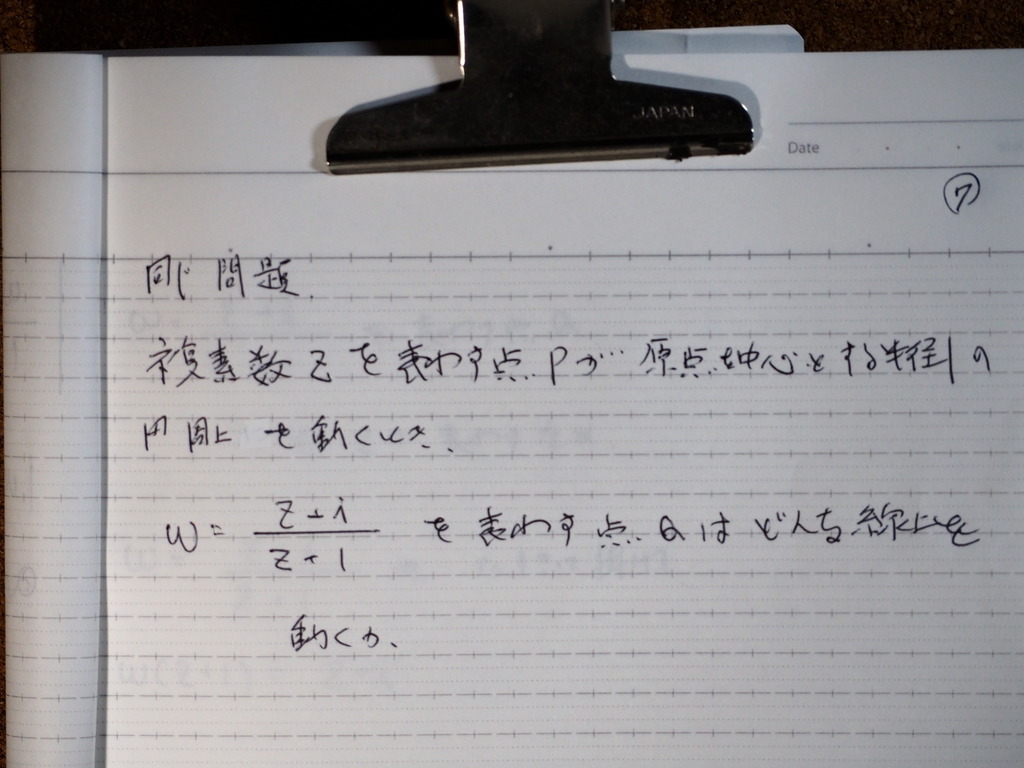 JAPAN
Date
⑦
同じ問題.
複素数zを表わす点Pが原点を中心とする半径1の
円周上を動くとき、
w = \frac{z+i}{z+1} を表わす点Qはどんな線上を
動くか、